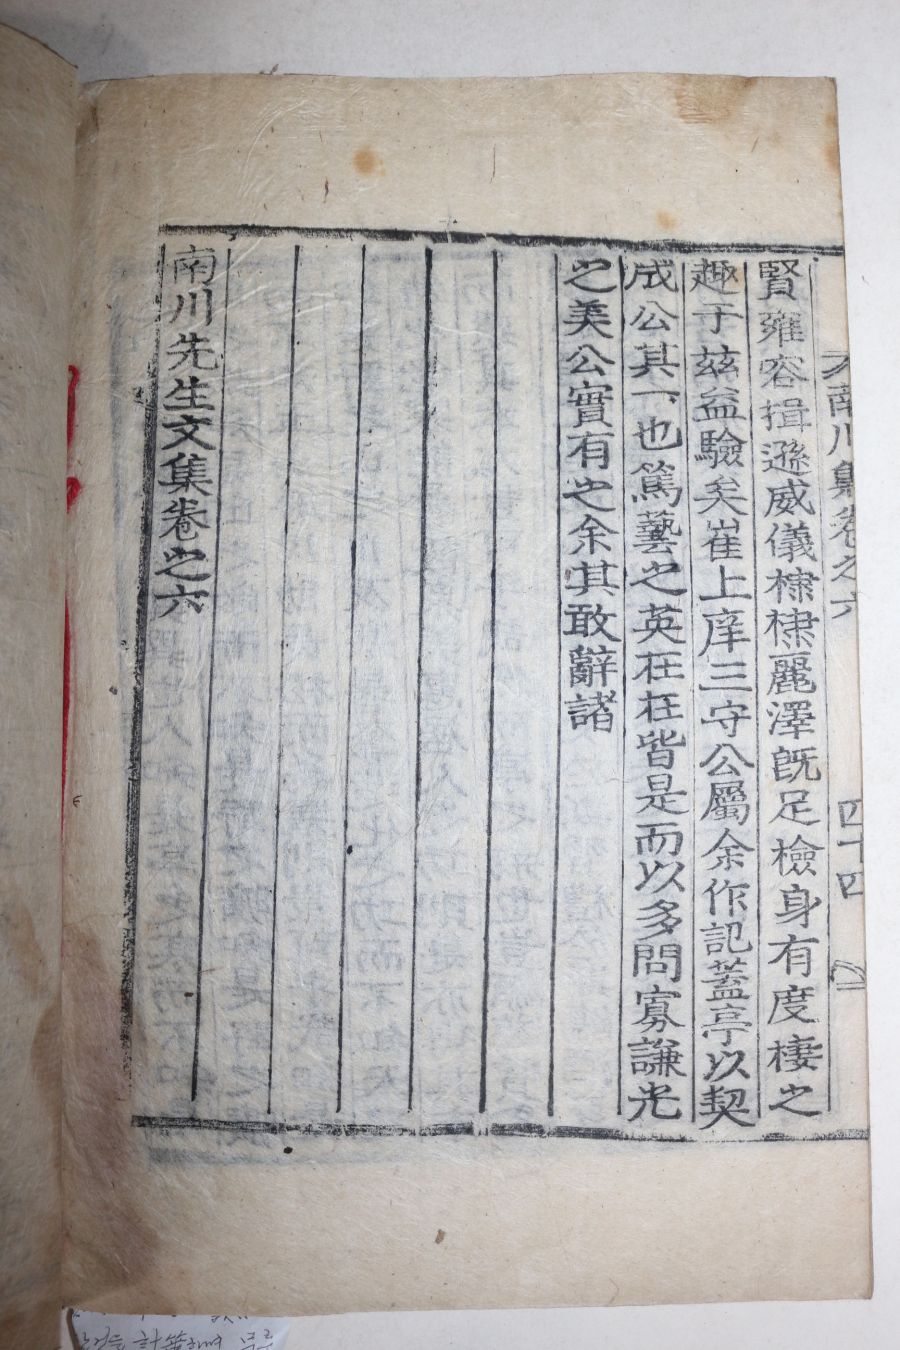 南川集卷之六 四十四
賢雍容揖遜威儀棣棣麗澤旣足檢身有度棲之
趣于玆益驗矣崔上庠三守公屬余作記蓋亭以契
成公其一也篤藝之英在在皆是而以多問寡謙光
之美公實有之余其敢辭諸
南川先生文集卷之六